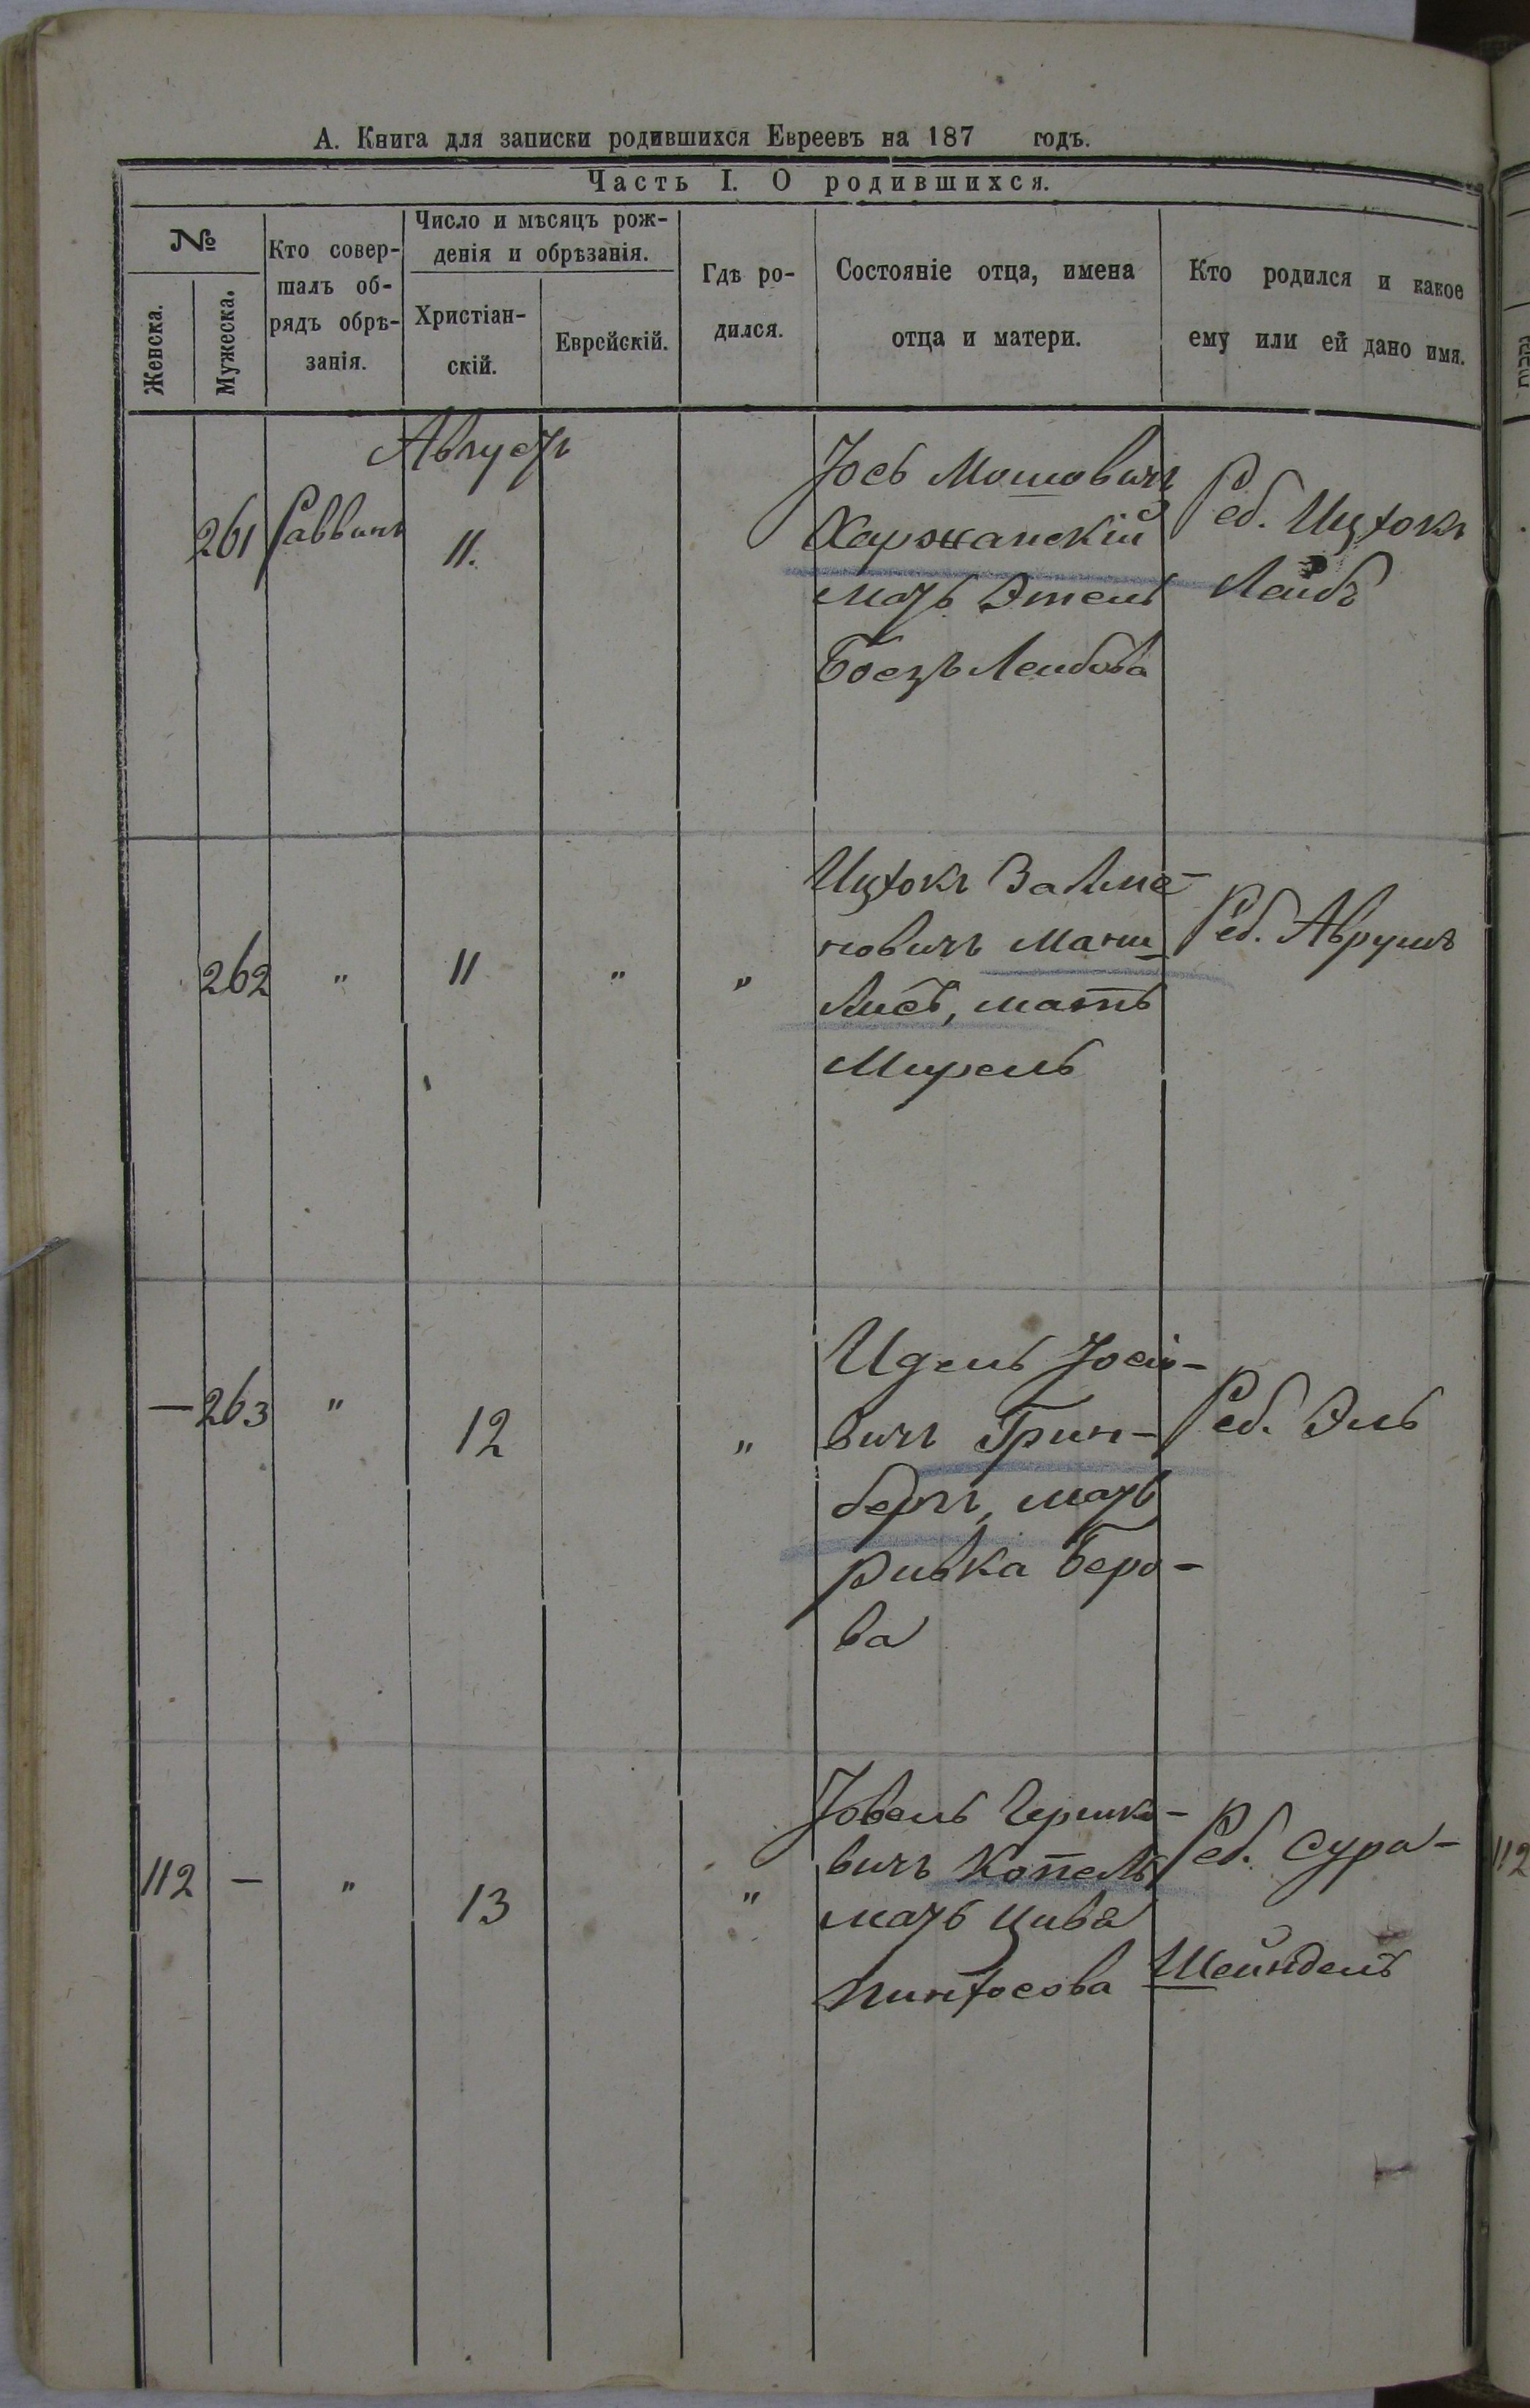 А. Книга для записки родившихся Евреевъ на 187 годъ.
Часть I. О родившихся.
№
Женска.
Мужеска.
Кто совер-
шалъ об-
рядъ обрѣ-
занія.
Число и мѣсяцъ рож-
денія и обрѣзанія.
Христіан-
скій.
Еврейскій.
Гдѣ ро-
дился.
Состояніе отца, имена
отца и матери.
Кто родился и какое
ему или ей дано имя.
Августъ
261 Раввинъ 11.
Іось Мошовичъ
Харжанскій
мать Этель
Лейбова
Реб. Ицхокъ
Лейбъ
262 " 11 " "
Ицхокъ Залма-
новичъ Мани-
Лисъ, мать
Мирель
Реб. Аврумъ
— 263 " 12 "
Идель Іосіо-
вичъ Грин-
бергъ, мать
Ривка Беро-
ва
Реб. Эль
112 — " 13 "
Іовель Гершко-
вичъ Копель
мать Цива
Пинхосова
Реб. Сура-
Шейндель
112